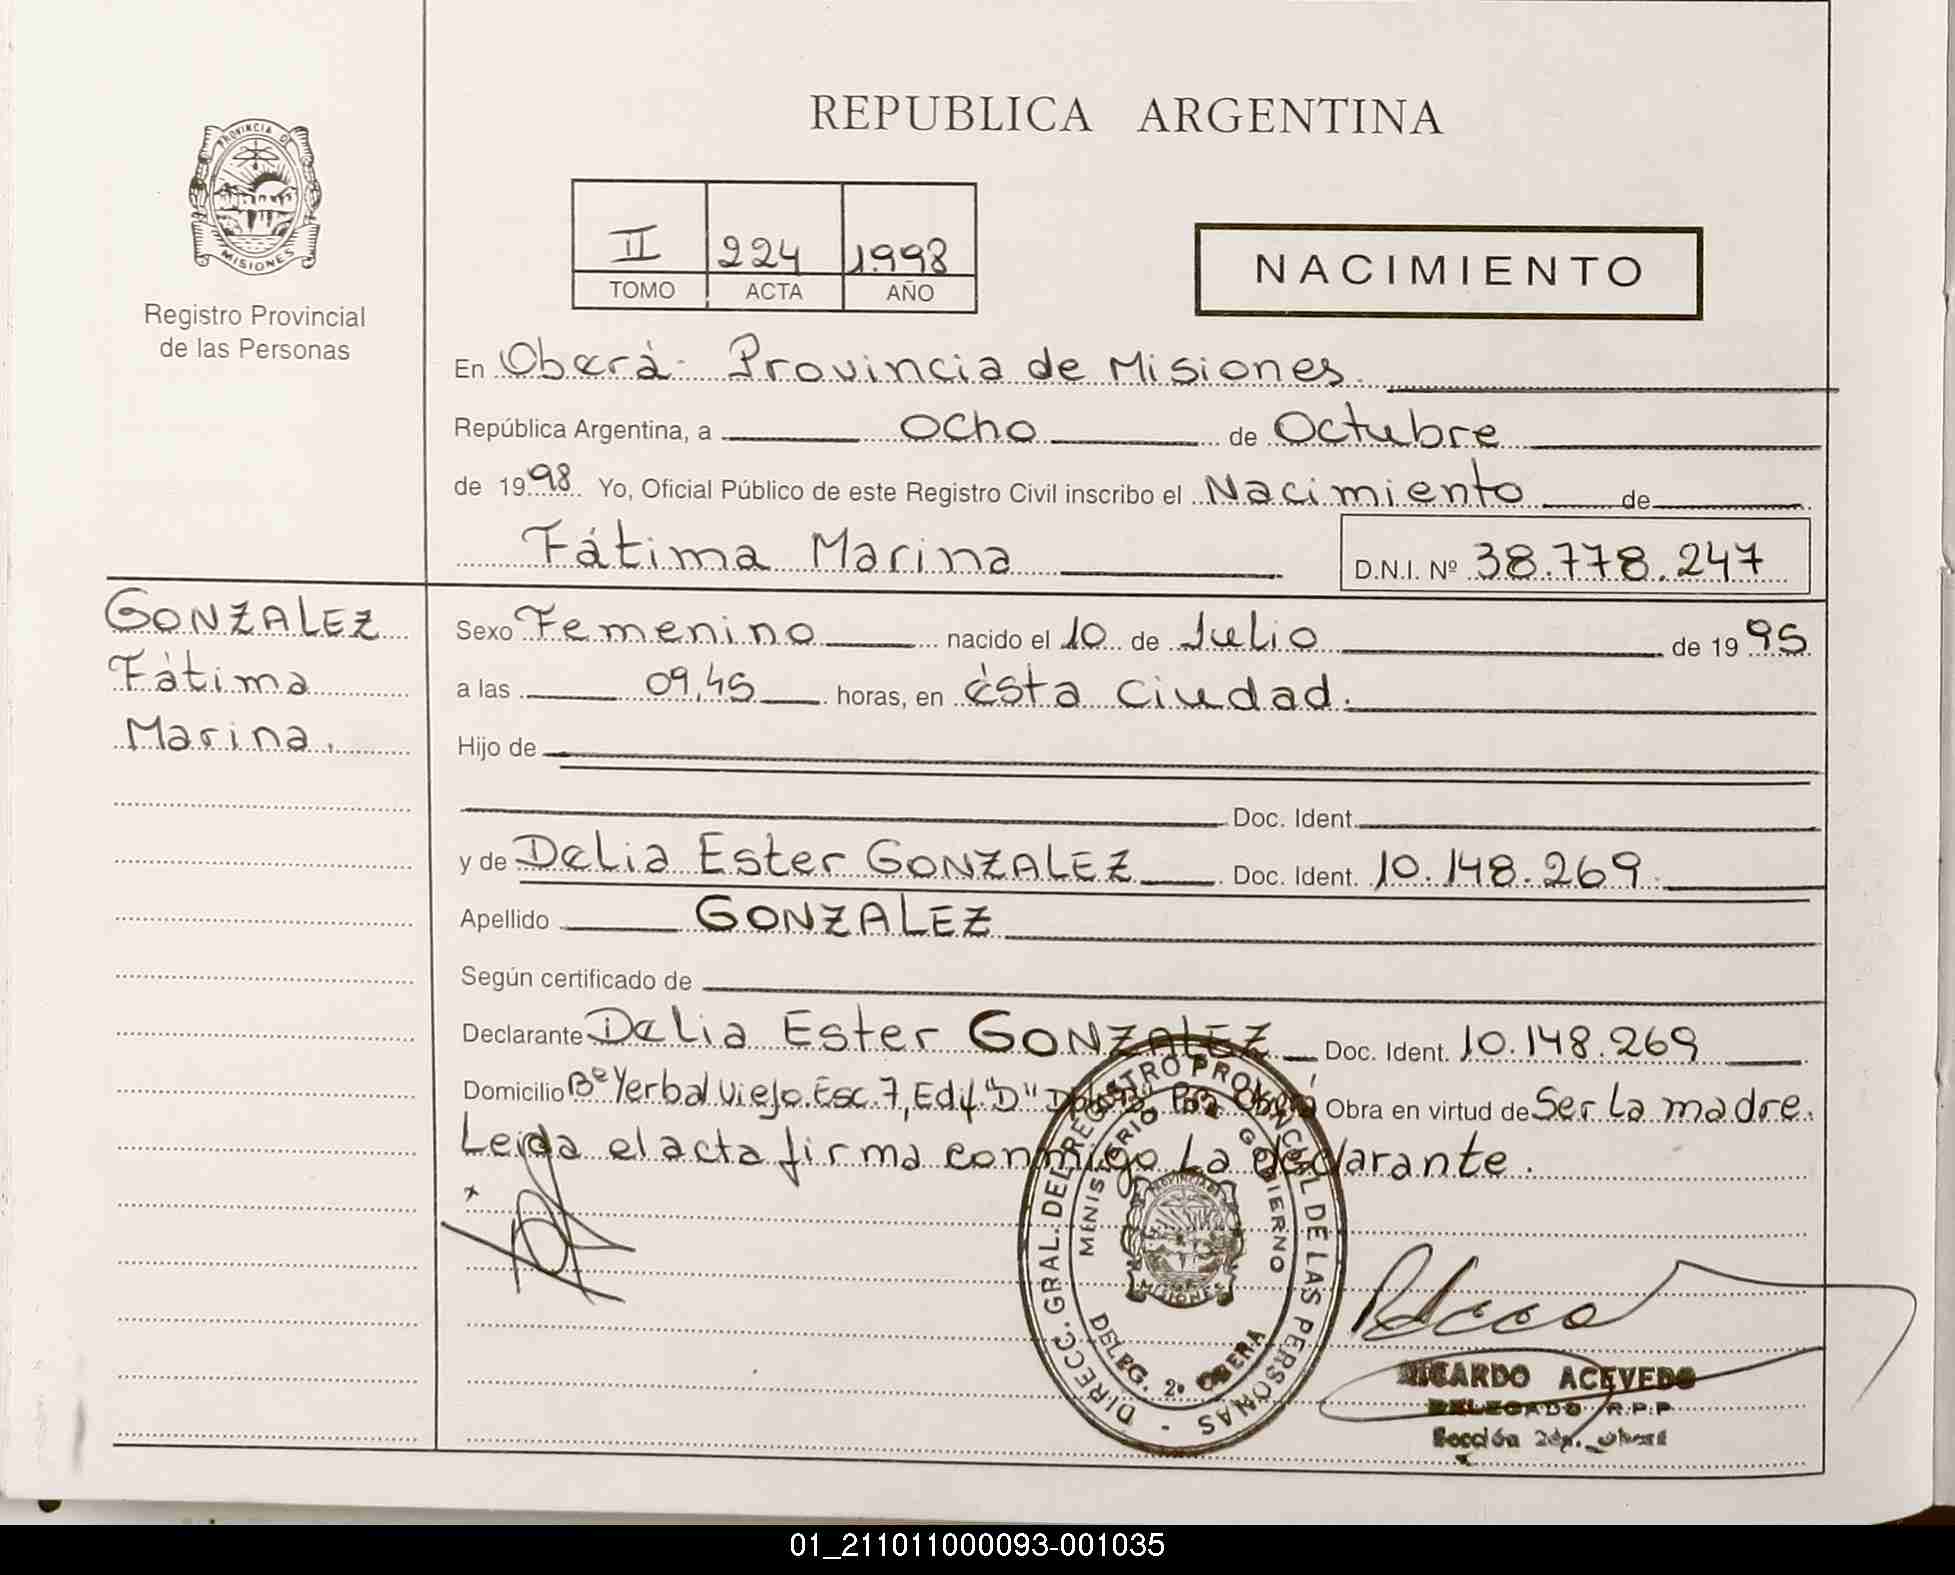 REPUBLICA ARGENTINA
PROVINCIA DE
MISIONES
Registro Provincial
de las Personas
II 224 1998
TOMO ACTA AÑO
NACIMIENTO
En Oberá- Provincia de Misiones.
República Argentina, a ocho de Octubre
de 1998. Yo, Oficial Público de este Registro Civil inscribo el Nacimiento de
Fátima Marina D.N.I. Nº 38.778.247
GONZALEZ
Fátima
Marina.
Sexo Femenino nacido el 10 de Julio de 1995
a las 09,45 horas, en ésta ciudad.
Hijo de
Doc. Ident.
y de Delia Ester GONZALEZ Doc. Ident. 10.148.269.
Apellido GONZALEZ
Según certificado de
Declarante Delia Ester GONZALEZ Doc. Ident. 10.148.269
Domicilio Bº Yerbal Viejo. Esc. 7, Edif. "D" Oberá Obra en virtud de Ser la madre.
Leida el acta firma conmigo la declarante.
DIRECC. GRAL. DEL REGISTRO PROVINCIAL DE LAS PERSONAS -
MINISTERIO DE GOBIERNO
PROVINCIA DE
MISIONES
DELEG. 2º OBERA
RICARDO ACEVEDO
DELEGADO R.P.P
Sección 2da. Oberá
01_211011000093-001035